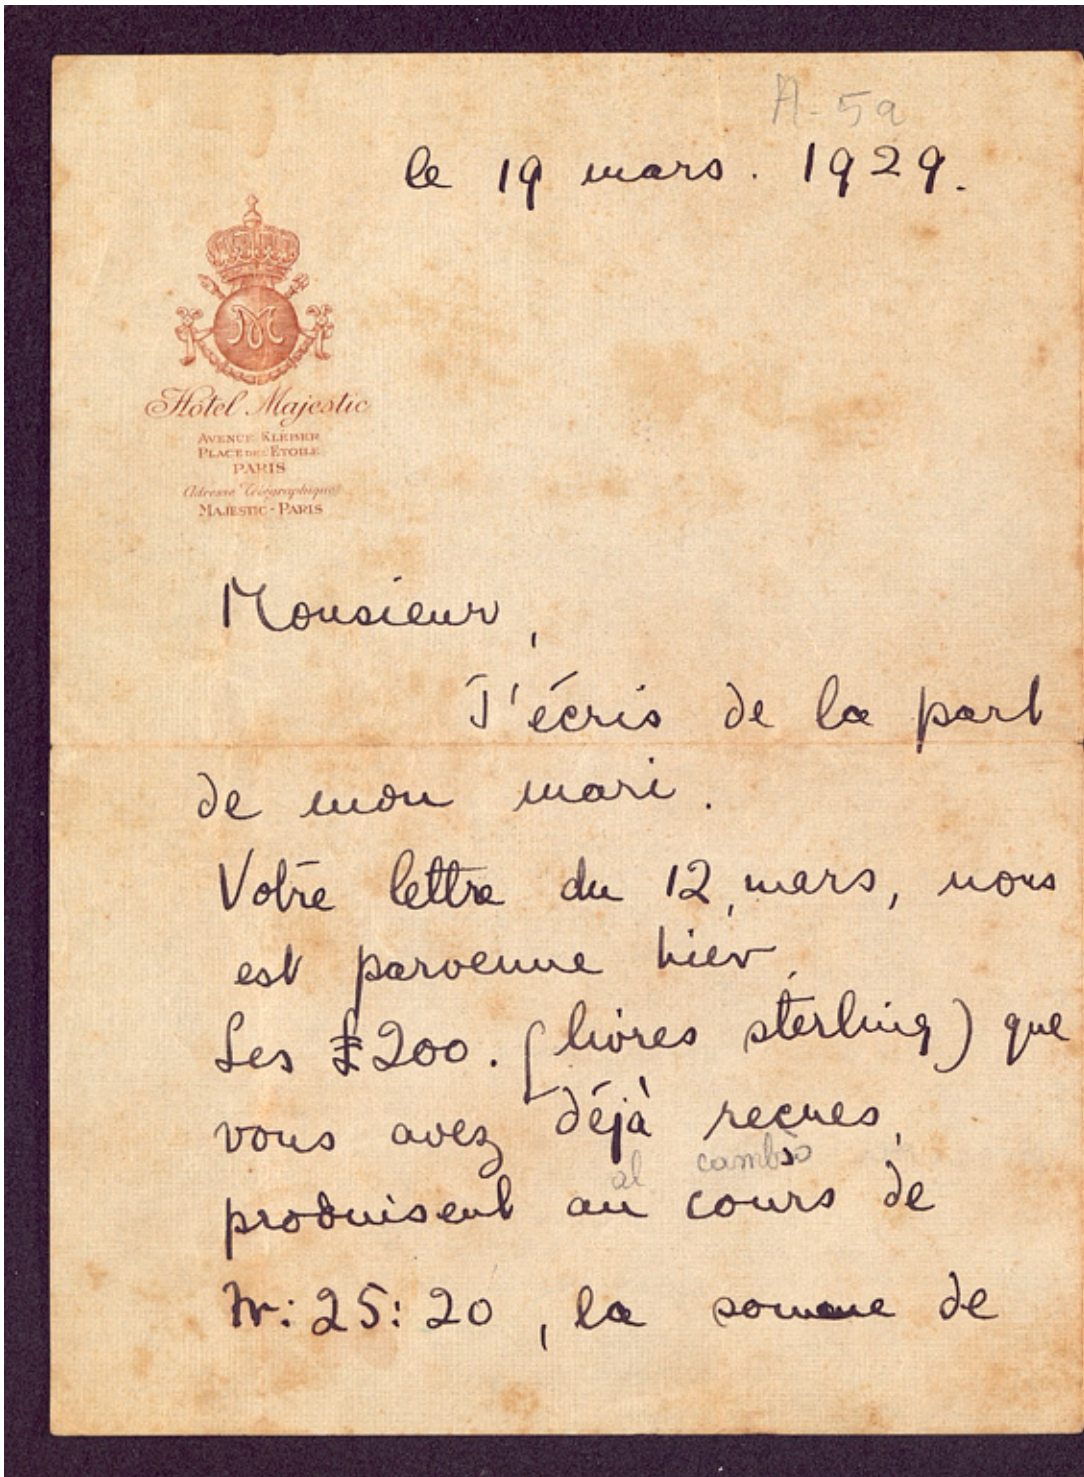 A-5a
le 19 mars. 1929.
M
Hôtel Majestic
AVENUE KLÉBER
PLACE DE L'ETOILE
PARIS
Adresse Télégraphique
MAJESTIC-PARIS
Monsieur,
J'écris de la part
de mon mari.
Votre lettre du 12, mars, nous
est parvenue hier.
Les £200. (livres sterling) que
vous avez déjà reçues,
al cambio
produisent au cours de
fr: 25: 20, la somme de